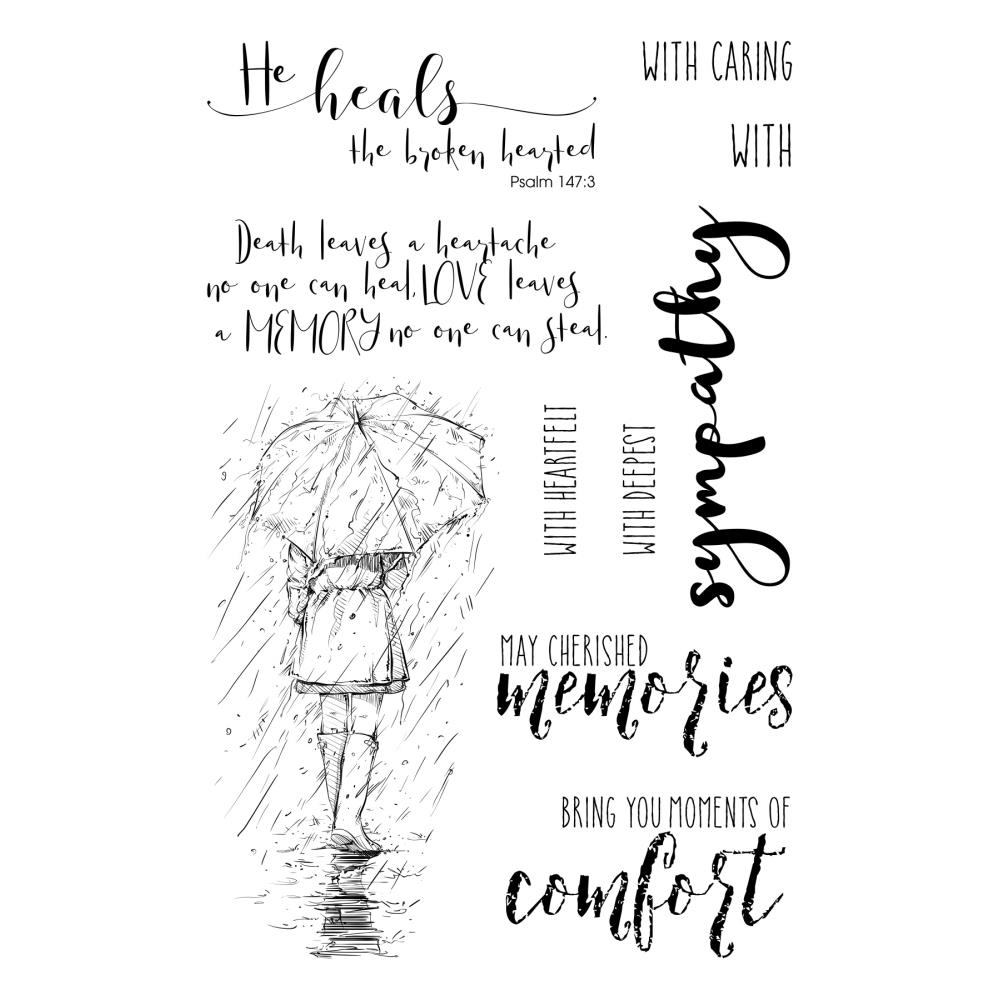 He heals
the broken hearted
Psalm 147:3
Death leaves a heartache
no one can heal, LOVE leaves
a MEMORY no one can steal.
WITH CARING
WITH
sympathy
WITH HEARTFELT
WITH DEEPEST
MAY CHERISHED
memories
BRING YOU MOMENTS OF
comfort